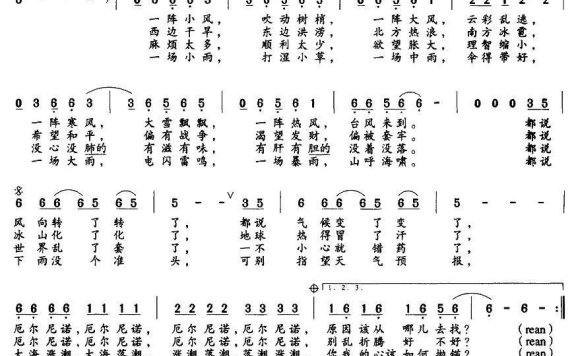 一阵小风， 吹动树梢， 一阵大风， 云彩乱逃，
西边干旱， 东边洪涝， 北方热浪， 南方冰雹，
麻烦太多， 顺利太少， 欲望胀大， 理智缩小，
一场小雨， 打湿小草， 一场中雨， 伞得带好，
0 3 6 6 3 | 3 6 5 6 5 | 0 6 5 6 1 | 6 6 5 6 6 - | 0 0 0 3 5
一阵寒风， 大雪飘飘， 一阵热风， 台风来到。 都说
希望和平， 偏有战争， 渴望发财， 偏被套牢。 都说
没心没肺的 有滋有味， 有肝有胆的 没着没落。 都说
一场大雨， 电闪雷鸣， 一场暴雨， 山呼海啸。 都说
6 6 6 6 5 6 5 | 5 - - 3 5 | 6 6 6 6 5 6 5 | 5 - -
风向转了转了， 都说 气候变了变了，
冰山化了化了， 地球 热得冒了汗了，
世界乱了套了， 一不 小心就错药了，
下雨没个准头， 可别 指望天气预报，
1. 2. 3.
6 6 6 6 1 1 1 1 | 2 2 2 2 3 3 3 3
厄尔尼诺，厄尔尼诺， 厄尔尼诺，厄尔尼诺， 原因该从哪儿去找？ (rean)
厄尔尼诺，厄尔尼诺， 厄尔尼诺，厄尔尼诺， 别乱折腾好不好？ (rean)